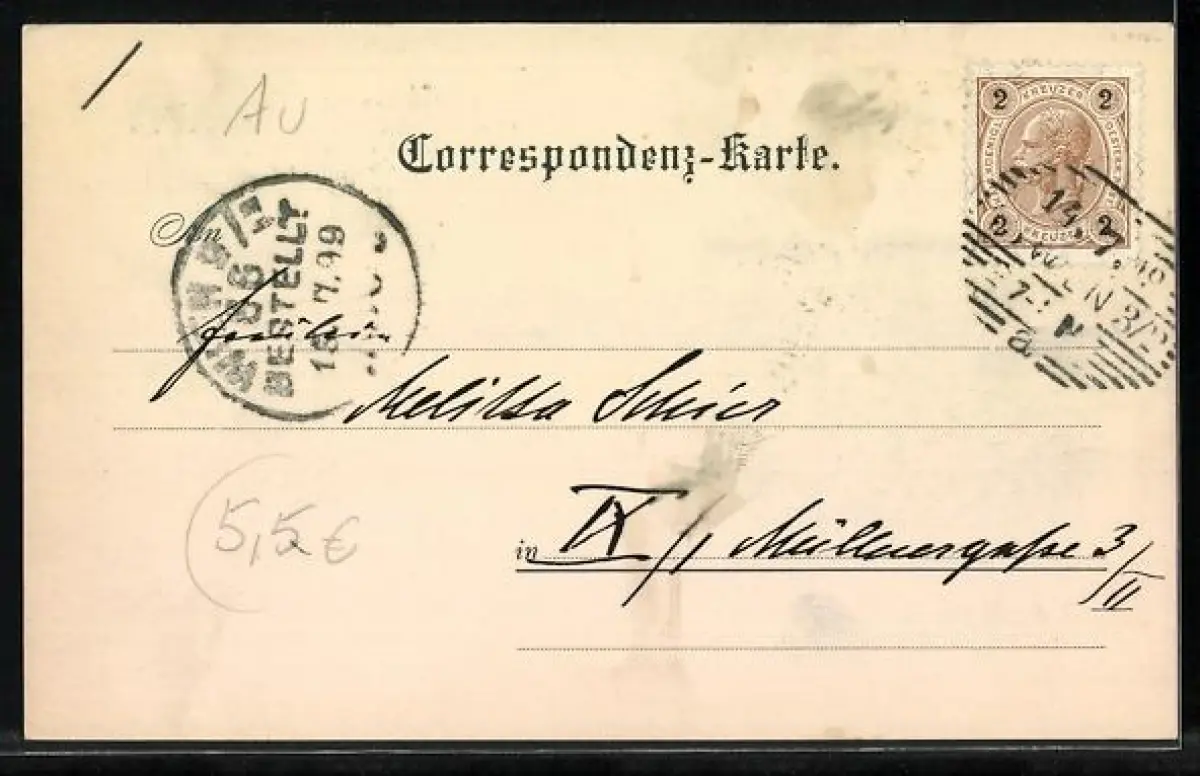 AU
Correspondenz-Karte.
2 KREUZER 2
2 2
An
BESTELLT
7.99
Fräulein
Melitta Schier
5,5 €
in IX/1 Müllnergasse 3/II